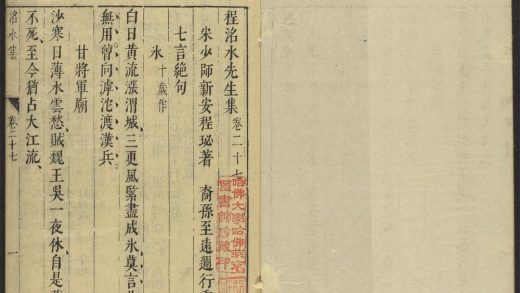 程洺水先生集卷二十七
宋少師新安程珌著 裔孫至遠邇行
七言絕句
氷十歲作
白日黃流漲渭城、三更風緊盡成氷、莫言
無用曾向滹沱渡漢兵、
甘將軍廟
沙寒日薄水雲愁、賊魏王吳一夜休、自是
不死至今猶占大江流、
洺水集 卷二十七 一
哈佛大學哈佛燕京
圖書館珍藏印